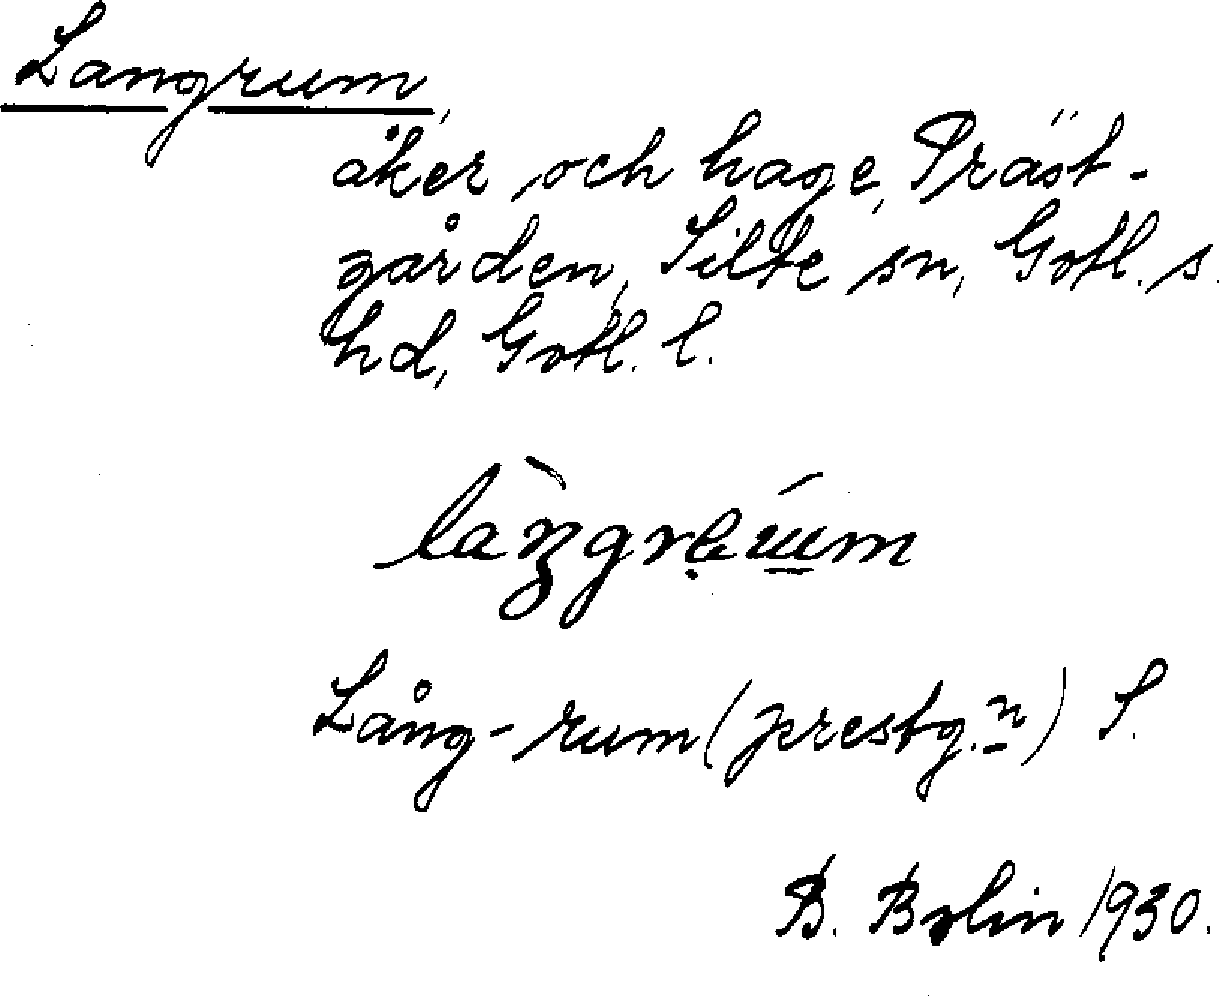 Langrum,
åker och hage, Präst-
gården, Silte sn, Gotl. s.
hd, Gotl. l.
Lång-rum (prestg.n) S.
B. Bolin 1930.